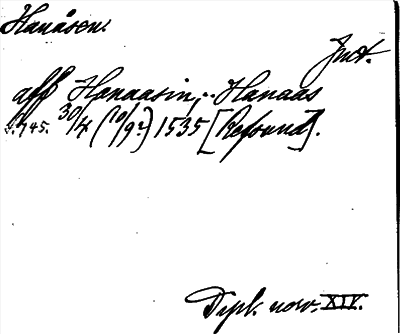 Hanåsen.
Jmt.
aff Hanaasin, .. Hanaas
s. 745. 30/4 (10/9?) 1535 [Refsund].
Dipl. norv. XIV.